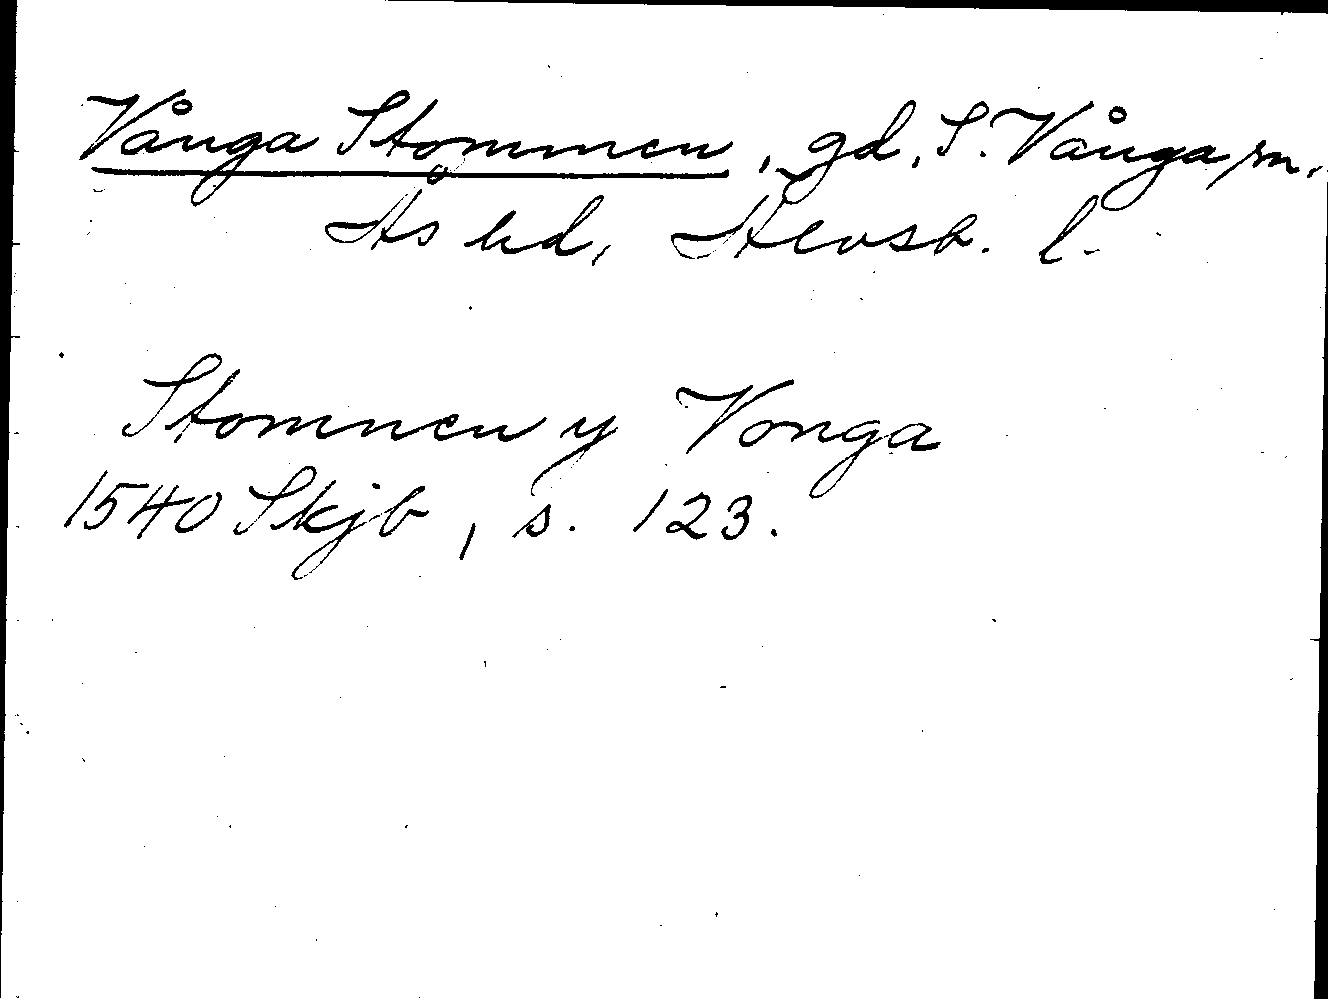 Vånga Stommen, gd, S. Vånga sn,
Ås hd, Älvsb. l.
Stomnen y Vonga
1540 Skjb, s. 123.